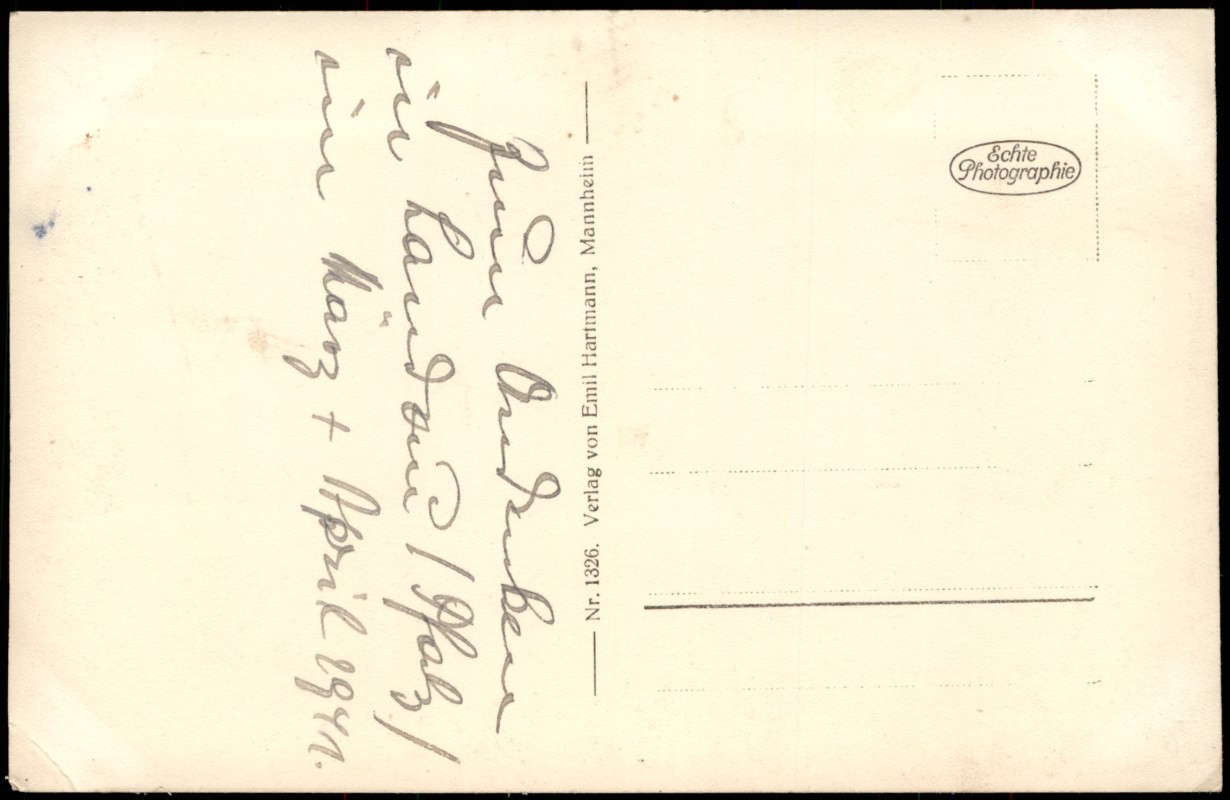 Zum Andenken
in Landau / Pfalz /
im März + April 1941.
Nr. 1326. Verlag von Emil Hartmann, Mannheim
Echte
Photographie